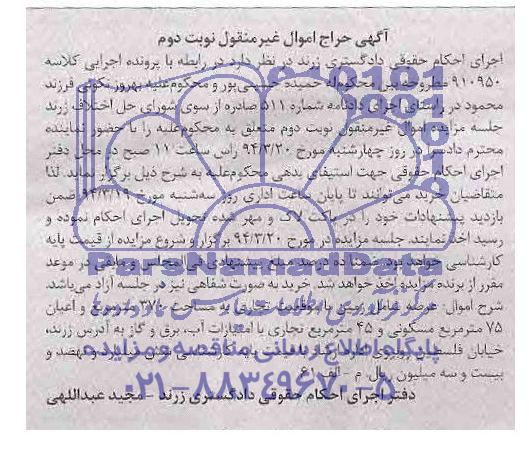 آگهی حراج اموال غیرمنقول نوبت دوم
اجرای احکام حقوقی دادگستری زرند در نظر دارد در رابطه با پرونده اجرایی کلاسه
۹۱۰۹۵۰ مطروحه بین محکوم‌له حمیده پور و محکوم‌علیه بهروز نکوئی فرزند
محمود در راستای اجرای دادنامه شماره ۵۱۱ صادره از سوی شورای حل اختلاف زرند
جلسه مزایده اموال غیرمنقول نوبت دوم متعلق به محکوم‌علیه را با حضور نماینده
محترم دادسرا در روز چهارشنبه مورخ ۹۴/۳/۲۰ راس ساعت ۱۱ صبح در محل دفتر
اجرای احکام حقوقی جهت استیفای بدهی محکوم‌علیه به شرح ذیل برگزار نماید. لذا
متقاضیان خرید می‌توانند تا پایان ساعت اداری روز سه‌شنبه مورخ ۹۴/۳/۱۹ ضمن
بازدید پیشنهادات خود را در پاکت لاک و مهر شده تحویل اجرای احکام نموده و
رسید اخذ نمایند. جلسه مزایده در مورخ ۹۴/۳/۲۰ برگزار و شروع مزایده از قیمت پایه
کارشناسی خواهد بود. ضمنا ده درصد مبلغ پیشنهادی فی‌المجلس و مابقی در موعد
مقرر از برنده مزایده اخذ خواهد شد. خرید به صورت شفاهی نیز در جلسه آزاد می‌باشد.
شرح اموال: عرصه شامل زمین با موقعیت تجاری به مساحت ۳۷/۸۰ مترمربع و اعیان
۷۵ مترمربع مسکونی و ۴۵ مترمربع تجاری با امتیازات آب، برق و گاز به آدرس زرند،
خیابان نهصد و
بیست و سه میلیون ریال. م - الف ۶۱
دفتر اجرای احکام حقوقی دادگستری زرند - مجید عبداللهی
ParsNamadData
پایگاه اطلاع رسانی مناقصه و مزایده
۰۲۱-۸۸۳۴۹۶۷۰-۵